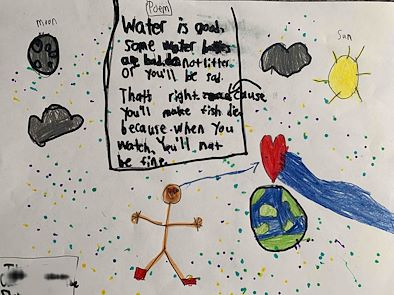 moon
(Poem)
Sun
Water is good,
some water bottles
are bad, do not litter
or you'll be sad.
That's right cause
you'll make fish die
because when you
watch, You'll not
be fine